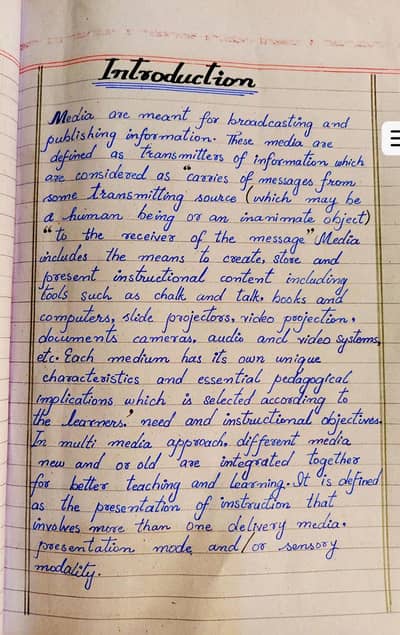 Introduction
Media are meant for broadcasting and
publishing information. These media are
defined as transmitters of information which
are considered as "carries of messages from
some transmitting source (which may be
a human being or an inanimate object)
"to the receiver of the message" Media
includes the means to create, store and
present instructional content including
tools such as chalk and talk, books and
computers, slide projectors, video projection,
documents cameras, audio and video systems,
etc. Each medium has its own unique
characteristics and essential pedagogical
implications which is selected according to
the learners' need and instructional objectives.
In multi media approach, different media
new and or old are integrated together
for better teaching and learning. It is defined
as the presentation of instruction that
involves more than one delivery media,
presentation mode, and/or sensory
modality.